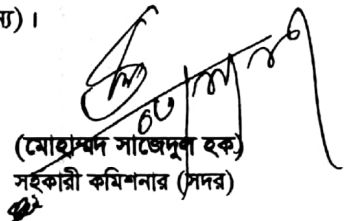 ন্য) ।
(মোহাম্মদ সাজেদুল হক)
সহকারী কমিশনার (সদর)